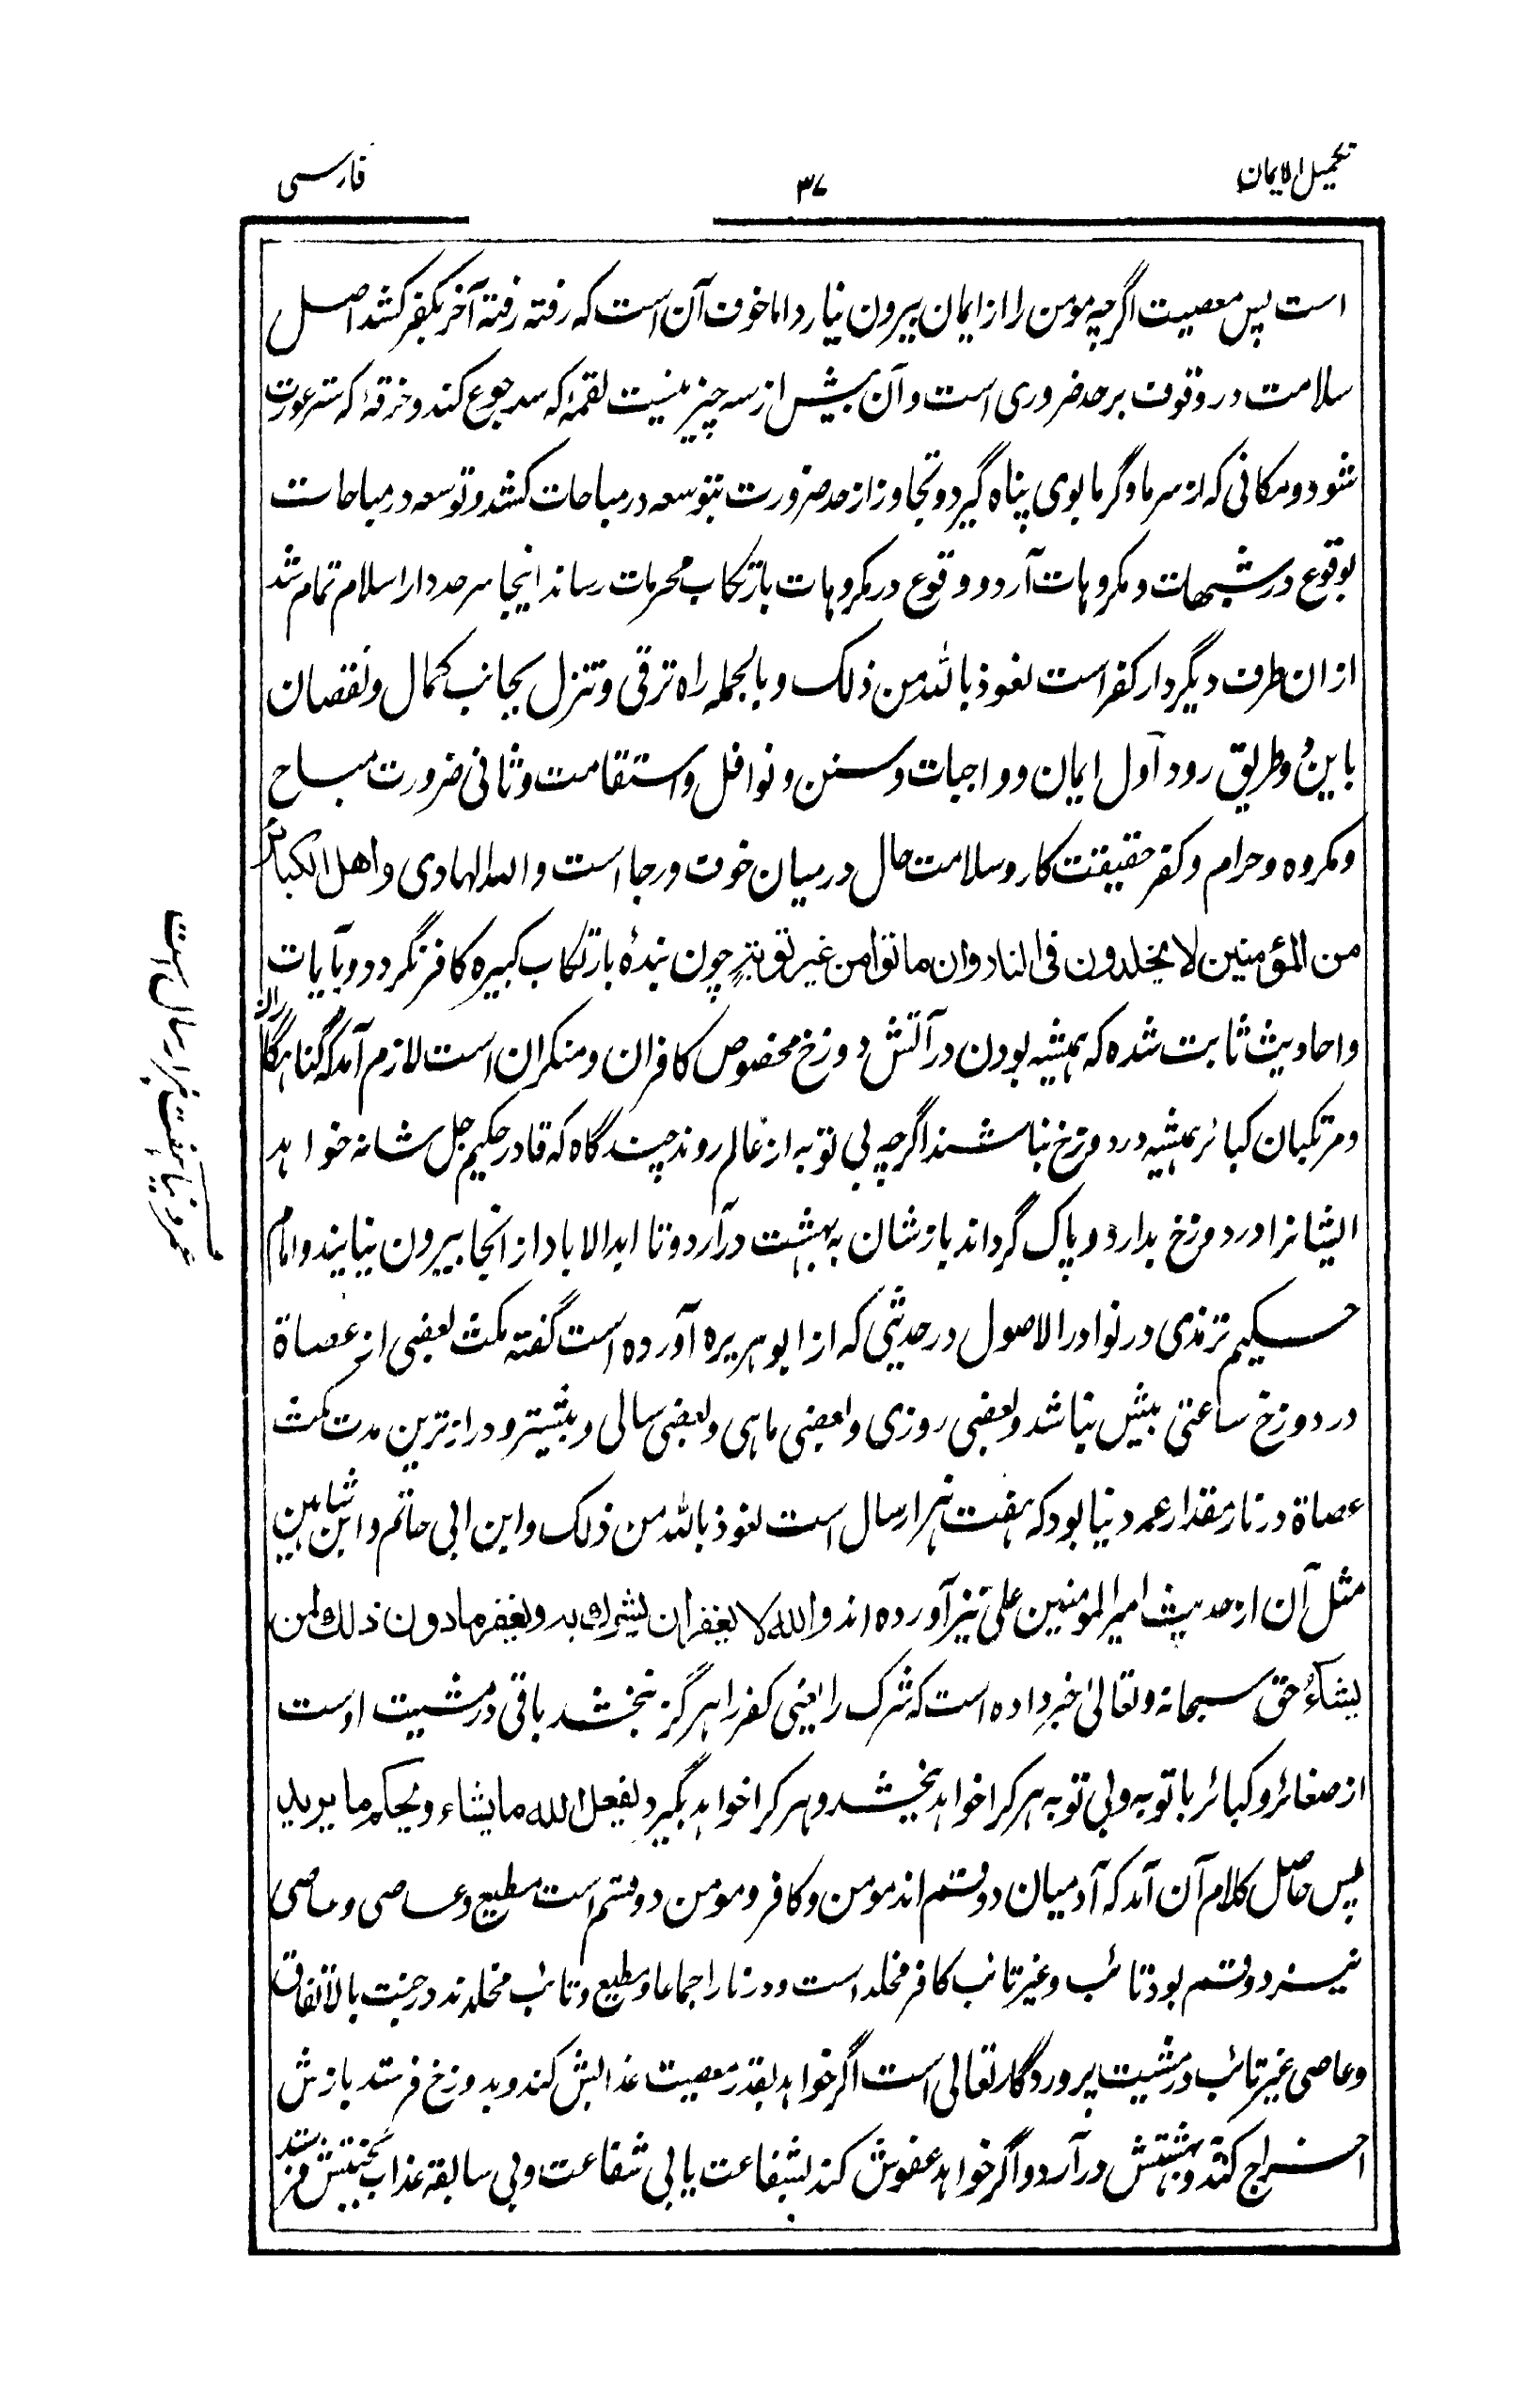 تکمیل الایمان
۳۷
فارسی
است پس معصیت اگرچہ مومن را از ایمان بیرون نیارد اما خوف آن است کہ رفتہ رفتہ آخر بکفر کشد اصل
سلامت در وقوف بر حد ضروری است و آن بیش از سہ چیز نیست لقمۂ کہ سد جوع کند و خرقۂ کہ ستر عورت
شود و مکانی کہ از سرما و گرما بوی پناہ گیرد و تجاوز از حد ضرورت بتوسعہ در مباحات کشد و توسعہ در مباحات
بوقوع در شبہات و مکروہات آرد و وقوع در مکروہات بارتکاب محرمات رساند اینجا سرحد دار اسلام تمام شد
ازان طرف دیگر دار کفر است نعوذ باللہ من ذلک و بالجملہ راہ ترقی و تنزل بجانب کمال و نقصان
باین و طریق رود اول ایمان و واجبات و سنن و نوافل و استقامت و ثانی ضرورت مباح
و مکروہ و حرام و کفر حقیقت کار و سلامت حال درمیان خوف و رجا است و اللہ الہادی و اهل الکبائر
من المؤمنین لا یخلدون فی النار وان ماتوا من غیر توبۃ چون بندہ بارتکاب کبیرہ کافر نگردد و بآیات
و احادیث ثابت شدہ کہ ہمیشہ بودن در آتش دوزخ مخصوص کافران و منکران است لازم آمد کہ گناہگاران
و مرتکبان کبائر ہمیشہ در دوزخ نباشند اگرچہ بی توبہ از عالم روند چندگاہ کہ قادر حکیم جل شانہ خواہد
ایشانرا در دوزخ بدارد و پاک گرداند بازشان بہ بہشت درآرد و تا ابد الاباد از انجا بیرون نیایند و امام
حکیم ترمذی در نوادر الاصول در حدیثی کہ از ابو ہریرہ آوردہ است گفتہ مکث بعضی از عصاۃ
در دوزخ ساعتی بیش نباشد و بعضی روزی و بعضی ماہی و بعضی سالی و بیشتر و دراز ترین مدت مکث
عصاۃ در نار مقدار عمر دنیا بود کہ ہفت ہزار سال است نعوذ باللہ من ذلک و ابن ابی حاتم و ابن شاہین
مثل آن از حدیث امیر المومنین علی نیز آوردہ اند و الله لا یغفر ان یشرك به و یغفر ما دون ذلك لمن
یشاء حق سبحانہ و تعالیٰ خبر دادہ است کہ شرک را یعنی کفر را ہرگز نبخشد باقی در مشیت اوست
از صغائر و کبائر با توبہ و بی توبہ ہر کرا خواہد بخشد و ہر کرا خواہد بگیرد یفعل الله ما یشاء و یحکم ما یرید
پس حاصل کلام آن آمد کہ آدمیان دو قسم اند مومن و کافر و مومن دو قسم است مطیع و عاصی و عاصی
نیز دو قسم بود تائب و غیر تائب کافر مخلد است و در نار اجماعا و مطیع و تائب مخلدند در جنت بالاتفاق
و عاصی غیر تائب در مشیت پروردگار تعالی است اگر خواہد بقدر معصیت عذابش کند و بدوزخ فرستد بازش
اخراج کند و بہشتش درآرد و اگر خواہد عفوش کند بشفاعت یا بی شفاعت و بی سابقہ عذاب بجنتش فرستد
عمر دنیا ہفت ہزار سال است